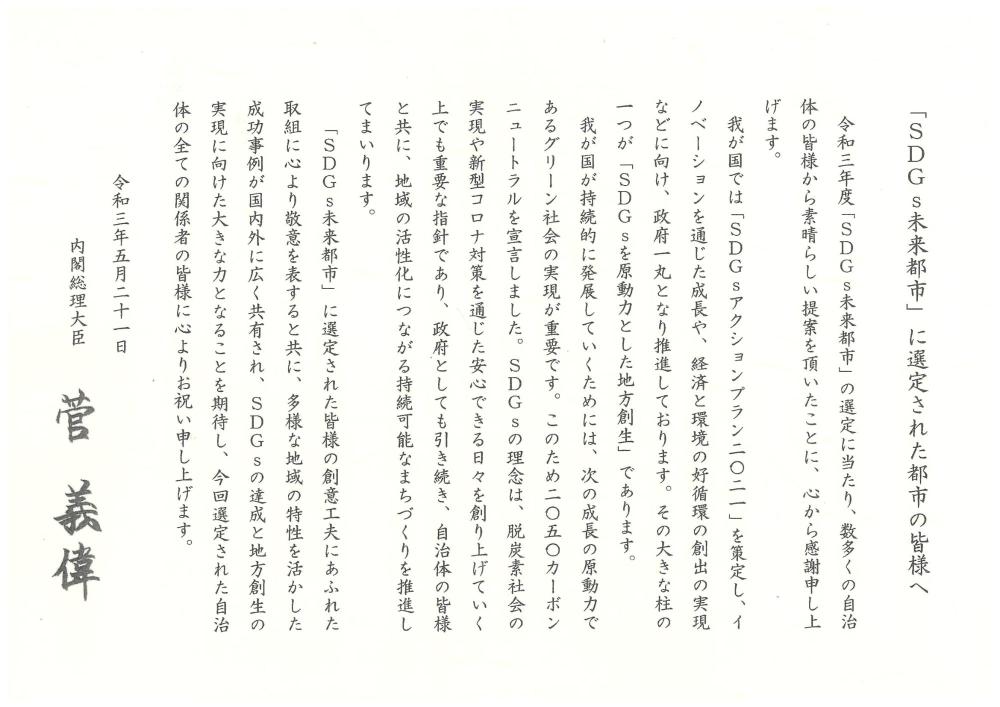 「SDGs未来都市」に選定された都市の皆様へ
令和三年度「SDGs未来都市」の選定に当たり、数多くの自治
体の皆様から素晴らしい提案を頂いたことに、心から感謝申し上
げます。
我が国では「SDGsアクションプラン二〇二一」を策定し、イ
ノベーションを通じた成長や、経済と環境の好循環の創出の実現
などに向け、政府一丸となり推進しております。その大きな柱の
一つが「SDGsを原動力とした地方創生」であります。
我が国が持続的に発展していくためには、次の成長の原動力で
あるグリーン社会の実現が重要です。このため二〇五〇カーボン
ニュートラルを宣言しました。SDGsの理念は、脱炭素社会の
実現や新型コロナ対策を通じた安心できる日々を創り上げていく
上でも重要な指針であり、政府としても引き続き、自治体の皆様
と共に、地域の活性化につながる持続可能なまちづくりを推進し
てまいります。
「SDGs未来都市」に選定された皆様の創意工夫にあふれた
取組に心より敬意を表すると共に、多様な地域の特性を活かした
成功事例が国内外に広く共有され、SDGsの達成と地方創生の
実現に向けた大きな力となることを期待し、今回選定された自治
体の全ての関係者の皆様に心よりお祝い申し上げます。
令和三年五月二十一日
内閣総理大臣 菅 義偉